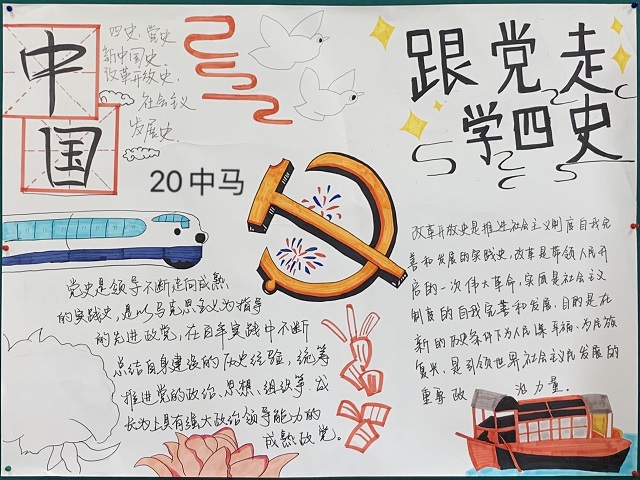 中国
四史：党史
新中国史
改革开放史
社会主义
发展史
跟党走
学四史
20中马
党史是领导不断走向成熟
的实践史，是以马克思主义为指导
的先进政党，在百年实践中不断
总结自身建设的历史经验，统筹
推进党的政治、思想、组织等，成
长为上具有强大政治领导能力的
成熟政党。
改革开放史是推进社会主义制度自我完
善和发展的实践史，改革是带领人民开
启的一次伟大革命，实质是社会主义
制度的自我完善和发展，目的是在
新的历史条件下为人民谋幸福、为民族
复兴，是引领世界社会主义发展的
重要政治力量。